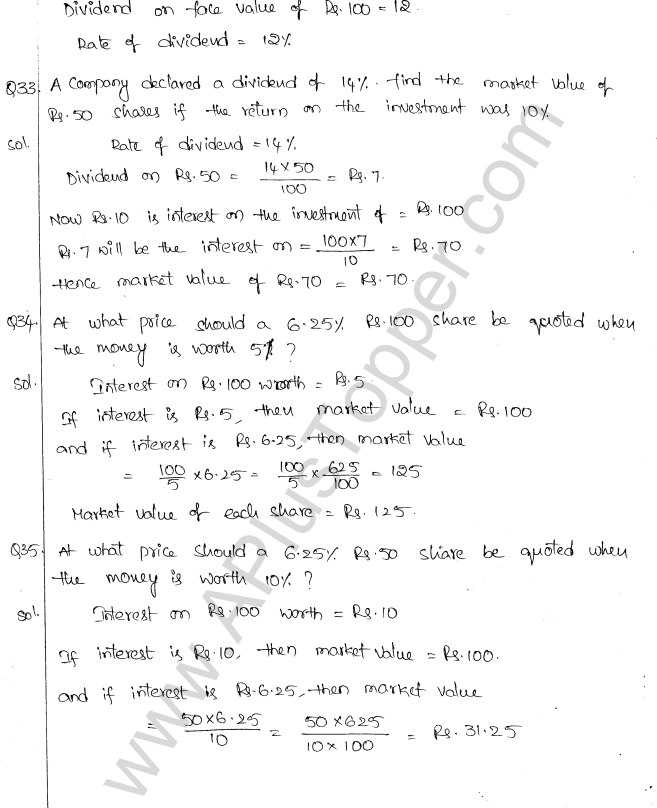 Dividend on face value of Rs. 100 = 12.
Rate of dividend = 12%
Q33. A Company declared a dividend of 14%. find the market value of
Rs. 50 shares if the return on the investment was 10%
sol. Rate of dividend = 14%
Dividend on Rs. 50 = 14 × 50 / 100 = Rs. 7.
Now Rs. 10 is interest on the investment of = Rs. 100
Rs. 7 will be the interest on = 100×7 / 10 = Rs. 70
Hence market value of Rs. 70 = Rs. 70.
Q34. At what price should a 6.25% Rs. 100 share be quoted when
the money is worth 5% ?
Sol. Interest on Rs. 100 worth = Rs. 5
If interest is Rs. 5, then market value = Rs. 100
and if interest is Rs. 6.25, then market value
= 100/5 × 6.25 = 100/5 × 625/100 = 125
Market value of each share = Rs. 125.
Q35. At what price should a 6.25% Rs. 50 share be quoted when
the money is worth 10% ?
sol. Interest on Rs. 100 worth = Rs. 10
If interest is Rs. 10, then market value = Rs. 100.
and if interest is Rs. 6.25, then market value
= 50×6.25 / 10 = 50×625 / 10×100 = Rs. 31.25
www.APlusTopper.com